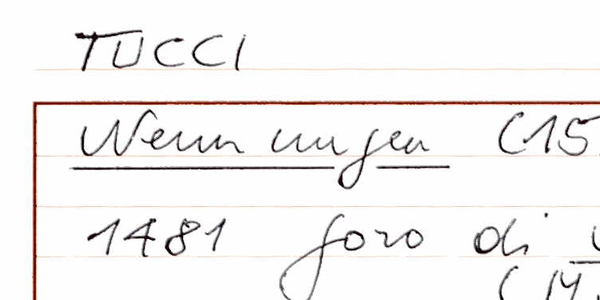 TUCCI
Nennungen (15
1481 foro di
(14